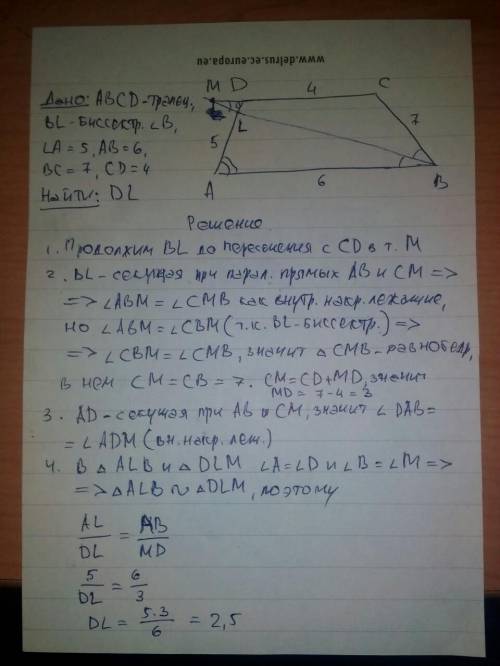 www.delrus.ec.europa.eu
M D 4 C
Дано: ABCD-трапец,
BL-биссектр. ∠B,
LA = 5, AB = 6,
BC = 7, CD = 4
Найти: DL
L
5
7
A 6 B
Решение
1. Продолжим BL до пересечения с CD в т. M
2. BL-секущая при парал. прямых AB и CM =>
=> ∠ABM = ∠CMB как внутр. накр. лежащие,
но ∠ABM = ∠CBM (т.к. BL-биссектр.) =>
=> ∠CBM = ∠CMB, значит △ CMB-равнобедр,
в нем CM = CB = 7. CM = CD + MD, значит
MD = 7 - 4 = 3
3. AD-секущая при AB и CM, значит ∠DAB =
= ∠ADM (вн. накр. леж.)
4. В △ ALB и △ DLM ∠A = ∠D и ∠B = ∠M =>
=> △ ALB ∾ △ DLM, поэтому
AL/DL = AB/MD
5/DL = 6/3
DL = 5·3/6 = 2,5